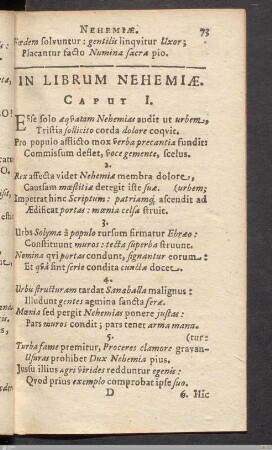 NEHEMIÆ. 73
Fœdem solvuntur: gentilis linqvitur Uxor;
Placantur facto Numina sacra pio.
IN LIBRUM NEHEMIÆ.
CAPUT I.
Esse solo æqvatam Nehemias audit ut urbem,
Tristia sollicito corda dolore coqvit.
Pro populo afflicto mox verba precantia fundit:
Commissum deflet, voce gemente, scelus.
2.
Rex affecta videt Nehemiæ membra dolore,
Caussam mœstitiæ detegit iste suæ. (urbem;
Impetrat hinc Scriptum: patriamq; ascendit ad
Ædificat portas: mœnia celsa struit.
3.
Urbs Solymæ à populo rursum firmatur Ebræo:
Constituunt muros: tecta superba struunt.
Nomina qvi portas condunt, signantur eorum:
Et qvâ sint serie condita cuncta docet.
4.
Urbis structuram tardat Sanaballa malignus:
Illudunt gentes agmina sancta feræ.
Mœnia sed pergit Nehemias ponere justus:
Pars muros condit; pars tenet arma manu.
5. (tur:
Turba fame premitur, Proceres clamore gravan-
Usuras prohibet Dux Nehemia pius.
Jussu illius agri virides redduntur egenis:
Qvod prius exemplo comprobat ipse suo.
D 6. Hic